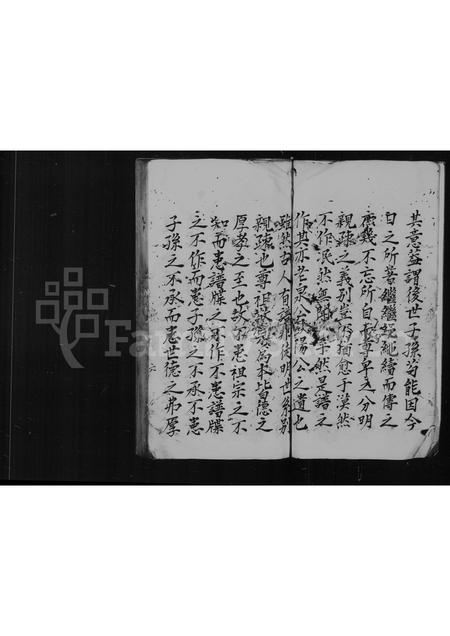 其意蓋謂後世子孫苟能因今
日之所著繼繼繩繩續而傳之
庶幾不忘所自尊卑之分明
親疎之義別豈不猶愈于漠然
不作泯然無聞然是譜之
作其亦老泉公歐陽公之遺也
雖然古人有明世系別
親疎也尊祖敬宗為本皆德之
厚孝之至也故不患祖宗之不
知而患譜牒之不作不患譜牒
之不作而患子孫之不承不患
子孫之不承而患世德之弗厚
六
FamilySearch